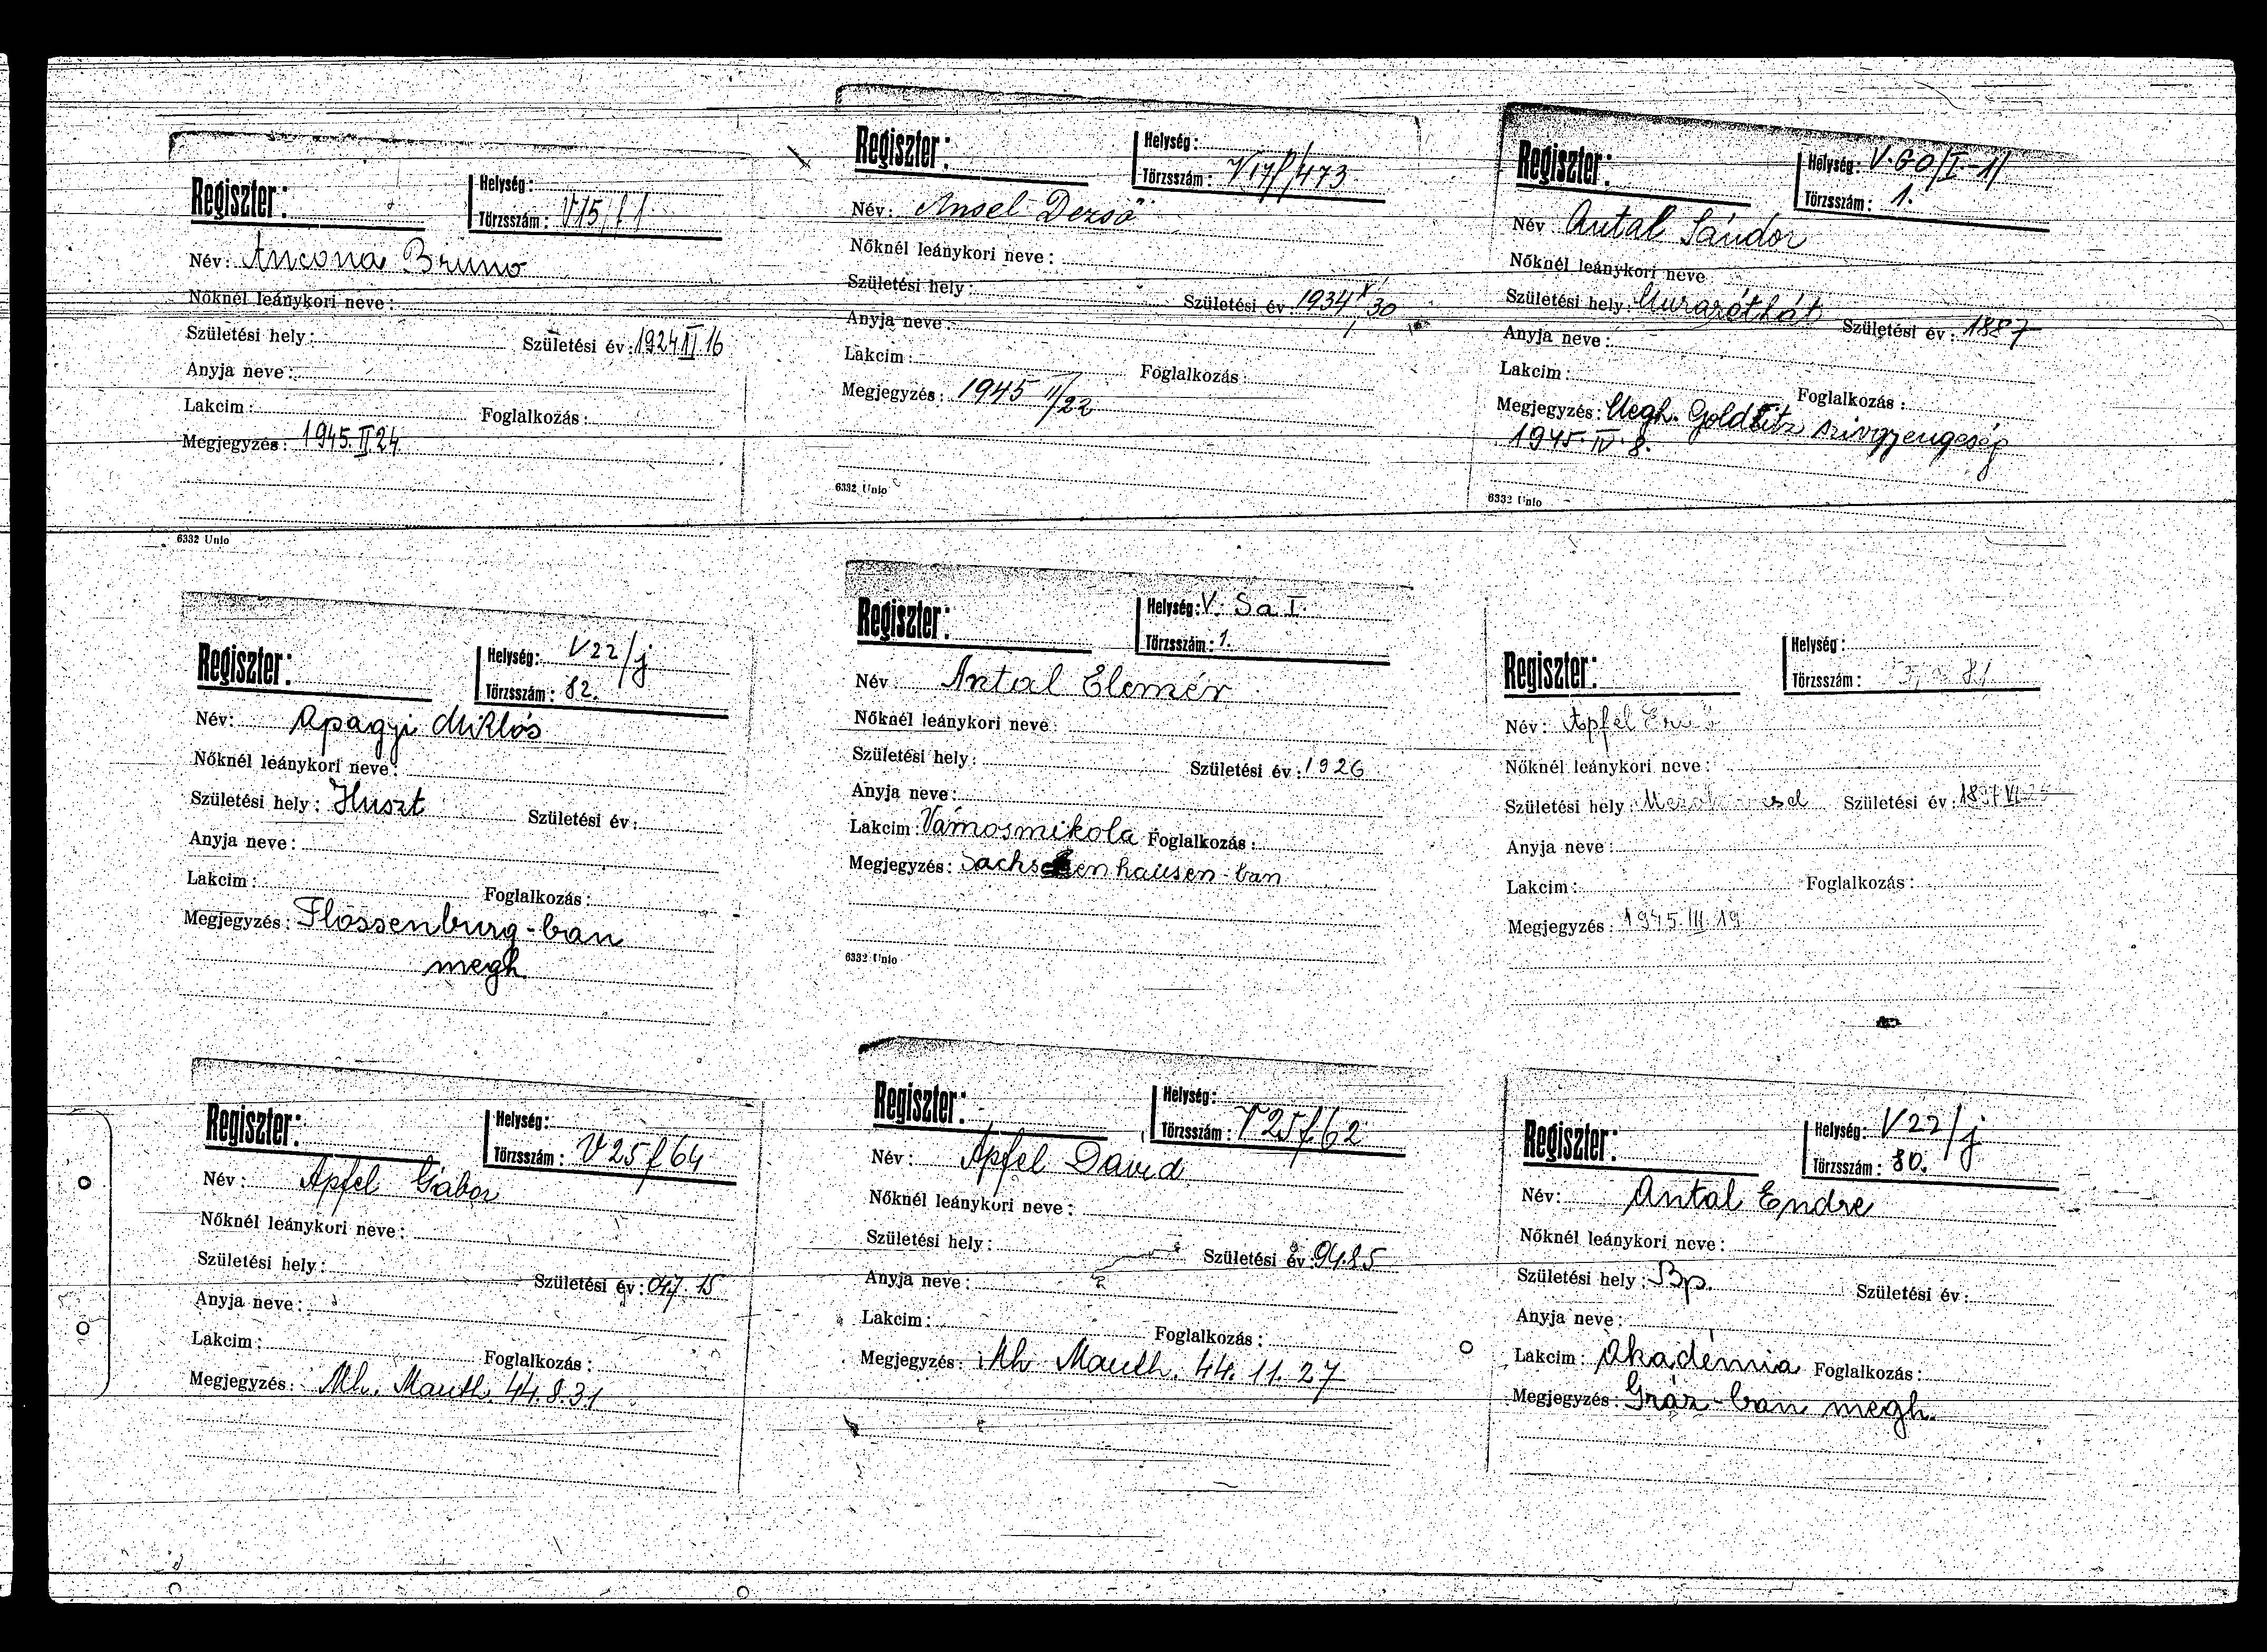 Regiszter:
Helység:
Törzsszám: V15/f 1
Név: Ancona Bruno
Nőknél leánykori neve:
Születési hely: Születési év: 1924 II 16
Anyja neve:
Lakcim: Foglalkozás:
Megjegyzés: 1945. II 24.
6332 Unio
Regiszter:
Helység:
Törzsszám: V17/f/473
Név: Ansel Dezső
Nőknél leánykori neve:
Születési hely: Születési év: 1934 X/30
Anyja neve:
Lakcim: Foglalkozás:
Megjegyzés: 1945 II/22
6332 Unio
Regiszter:
Helység: V.GO/I-1/
Törzsszám: 1.
Név Antal Sándor
Nőknél leánykori neve
Születési hely: Születési év: 1887
Anyja neve:
Lakcim: Foglalkozás:
Megjegyzés: Megh. szivgyengeség
1945. IV. 8.
6332 Unio
Regiszter:
Helység: V22/j
Törzsszám: 82.
Név: Apagyi Miklós
Nőknél leánykori neve:
Születési hely: Huszt Születési év:
Anyja neve:
Lakcim: Foglalkozás:
Megjegyzés: Flossenburg-ban
megh.
Regiszter:
Helység: V. Sa I.
Törzsszám: 1.
Név Antal Elemér
Nőknél leánykori neve:
Születési hely: Születési év: 1926
Anyja neve:
Lakcim: Vámosmikola Foglalkozás:
Megjegyzés: Sachsenhausen-ban
6332 Unio
Regiszter:
Helység:
Törzsszám: 81
Név: Apfel Ernő
Nőknél leánykori neve:
Születési hely Születési év:
Anyja neve:
Lakcim: Foglalkozás:
Megjegyzés: 1945. III. 19
Regiszter:
Helység:
Törzsszám: V 25 f 64
Név: Apfel Gábor
Nőknél leánykori neve:
Születési hely: Születési év: 04.7. 15
Anyja neve:
Lakcim: Foglalkozás:
Megjegyzés: Mh. Mauth. 44.8.31
Regiszter:
Helység:
Törzsszám: V 25 f. 62
Név: Apfel David
Nőknél leánykori neve:
Születési hely: Születési év: 94.8.5
Anyja neve:
Lakcim: Foglalkozás:
Megjegyzés: Mh Mauth. 44. 11. 27
Regiszter:
Helység: V22/j
Törzsszám: 80.
Név: Antal Endre
Nőknél leánykori neve:
Születési hely: Bp. Születési év:
Anyja neve:
Lakcim: Akadémia Foglalkozás:
Megjegyzés: Gráz-ban megh.